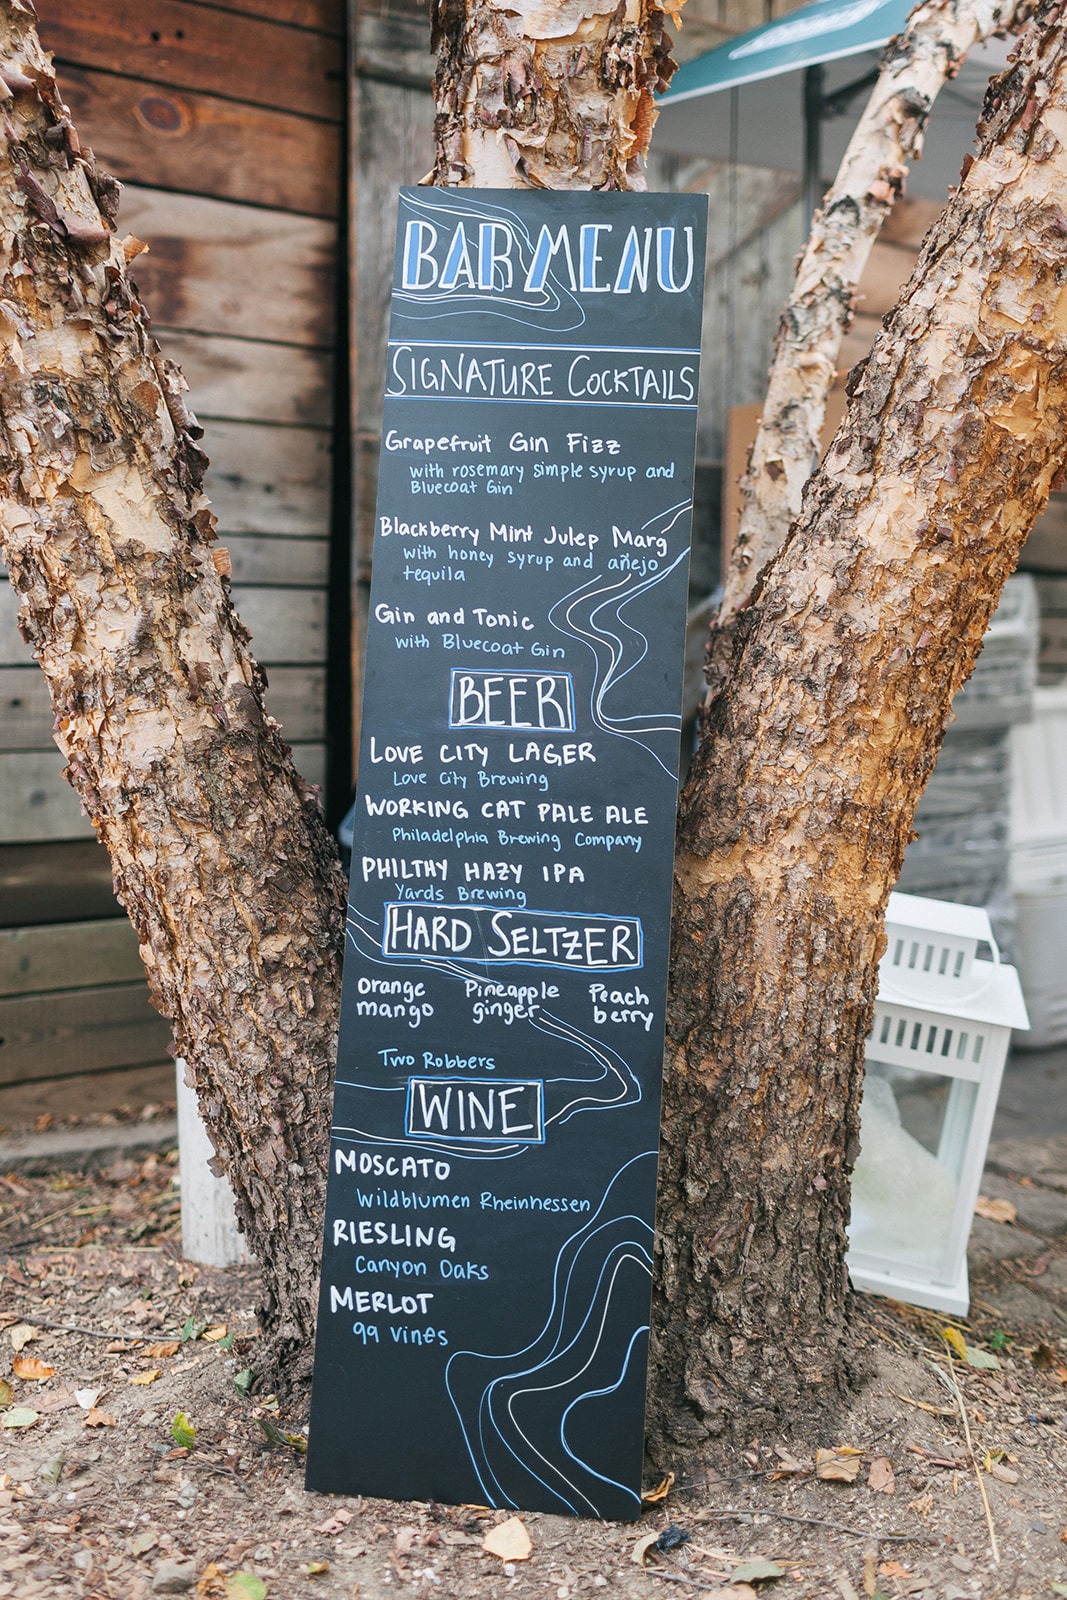 BAR MENU
SIGNATURE COCKTAILS
Grapefruit Gin Fizz
with rosemary simple syrup and
Bluecoat Gin
Blackberry Mint Julep Marg
with honey syrup and añejo
tequila
Gin and Tonic
with Bluecoat Gin
BEER
LOVE CITY LAGER
Love City Brewing
WORKING CAT PALE ALE
Philadelphia Brewing Company
PHILTHY HAZY IPA
Yards Brewing
HARD SELTZER
Orange Pineapple Peach
mango ginger berry
Two Robbers
WINE
MOSCATO
Wildblumen Rheinhessen
RIESLING
Canyon Oaks
MERLOT
99 Vines